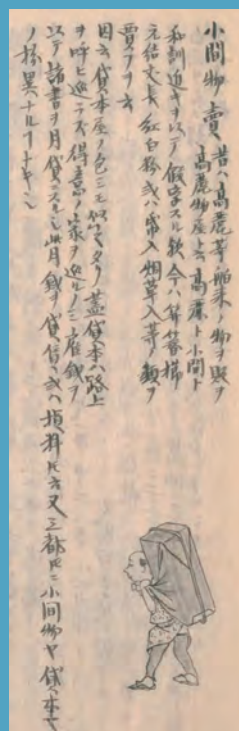 小間物賣 昔ハ高麗等舶来ノ物ヲ販ヲ
高麗物屋ト云高麗ト小間ト
和訓近キヲ以テ假字スル歟今ハ笄簪櫛
元結丈長紅白粉或ハ紙入烟草入等ノ類ヲ
賣ヲ云
因云貸本屋ノ包ミモ似タリ蓋貸本ハ路上
ヲ呼ビ巡ラズ得意ノ家ヲ巡ルノミ雇銭ヲ
以テ諸書ヲ月貸ニスル也此月銭ヲ貸 或ハ損料トモ云又三都トモニ小間物ヤ貸本ヤ
ノ扮異ナルヿナキ也